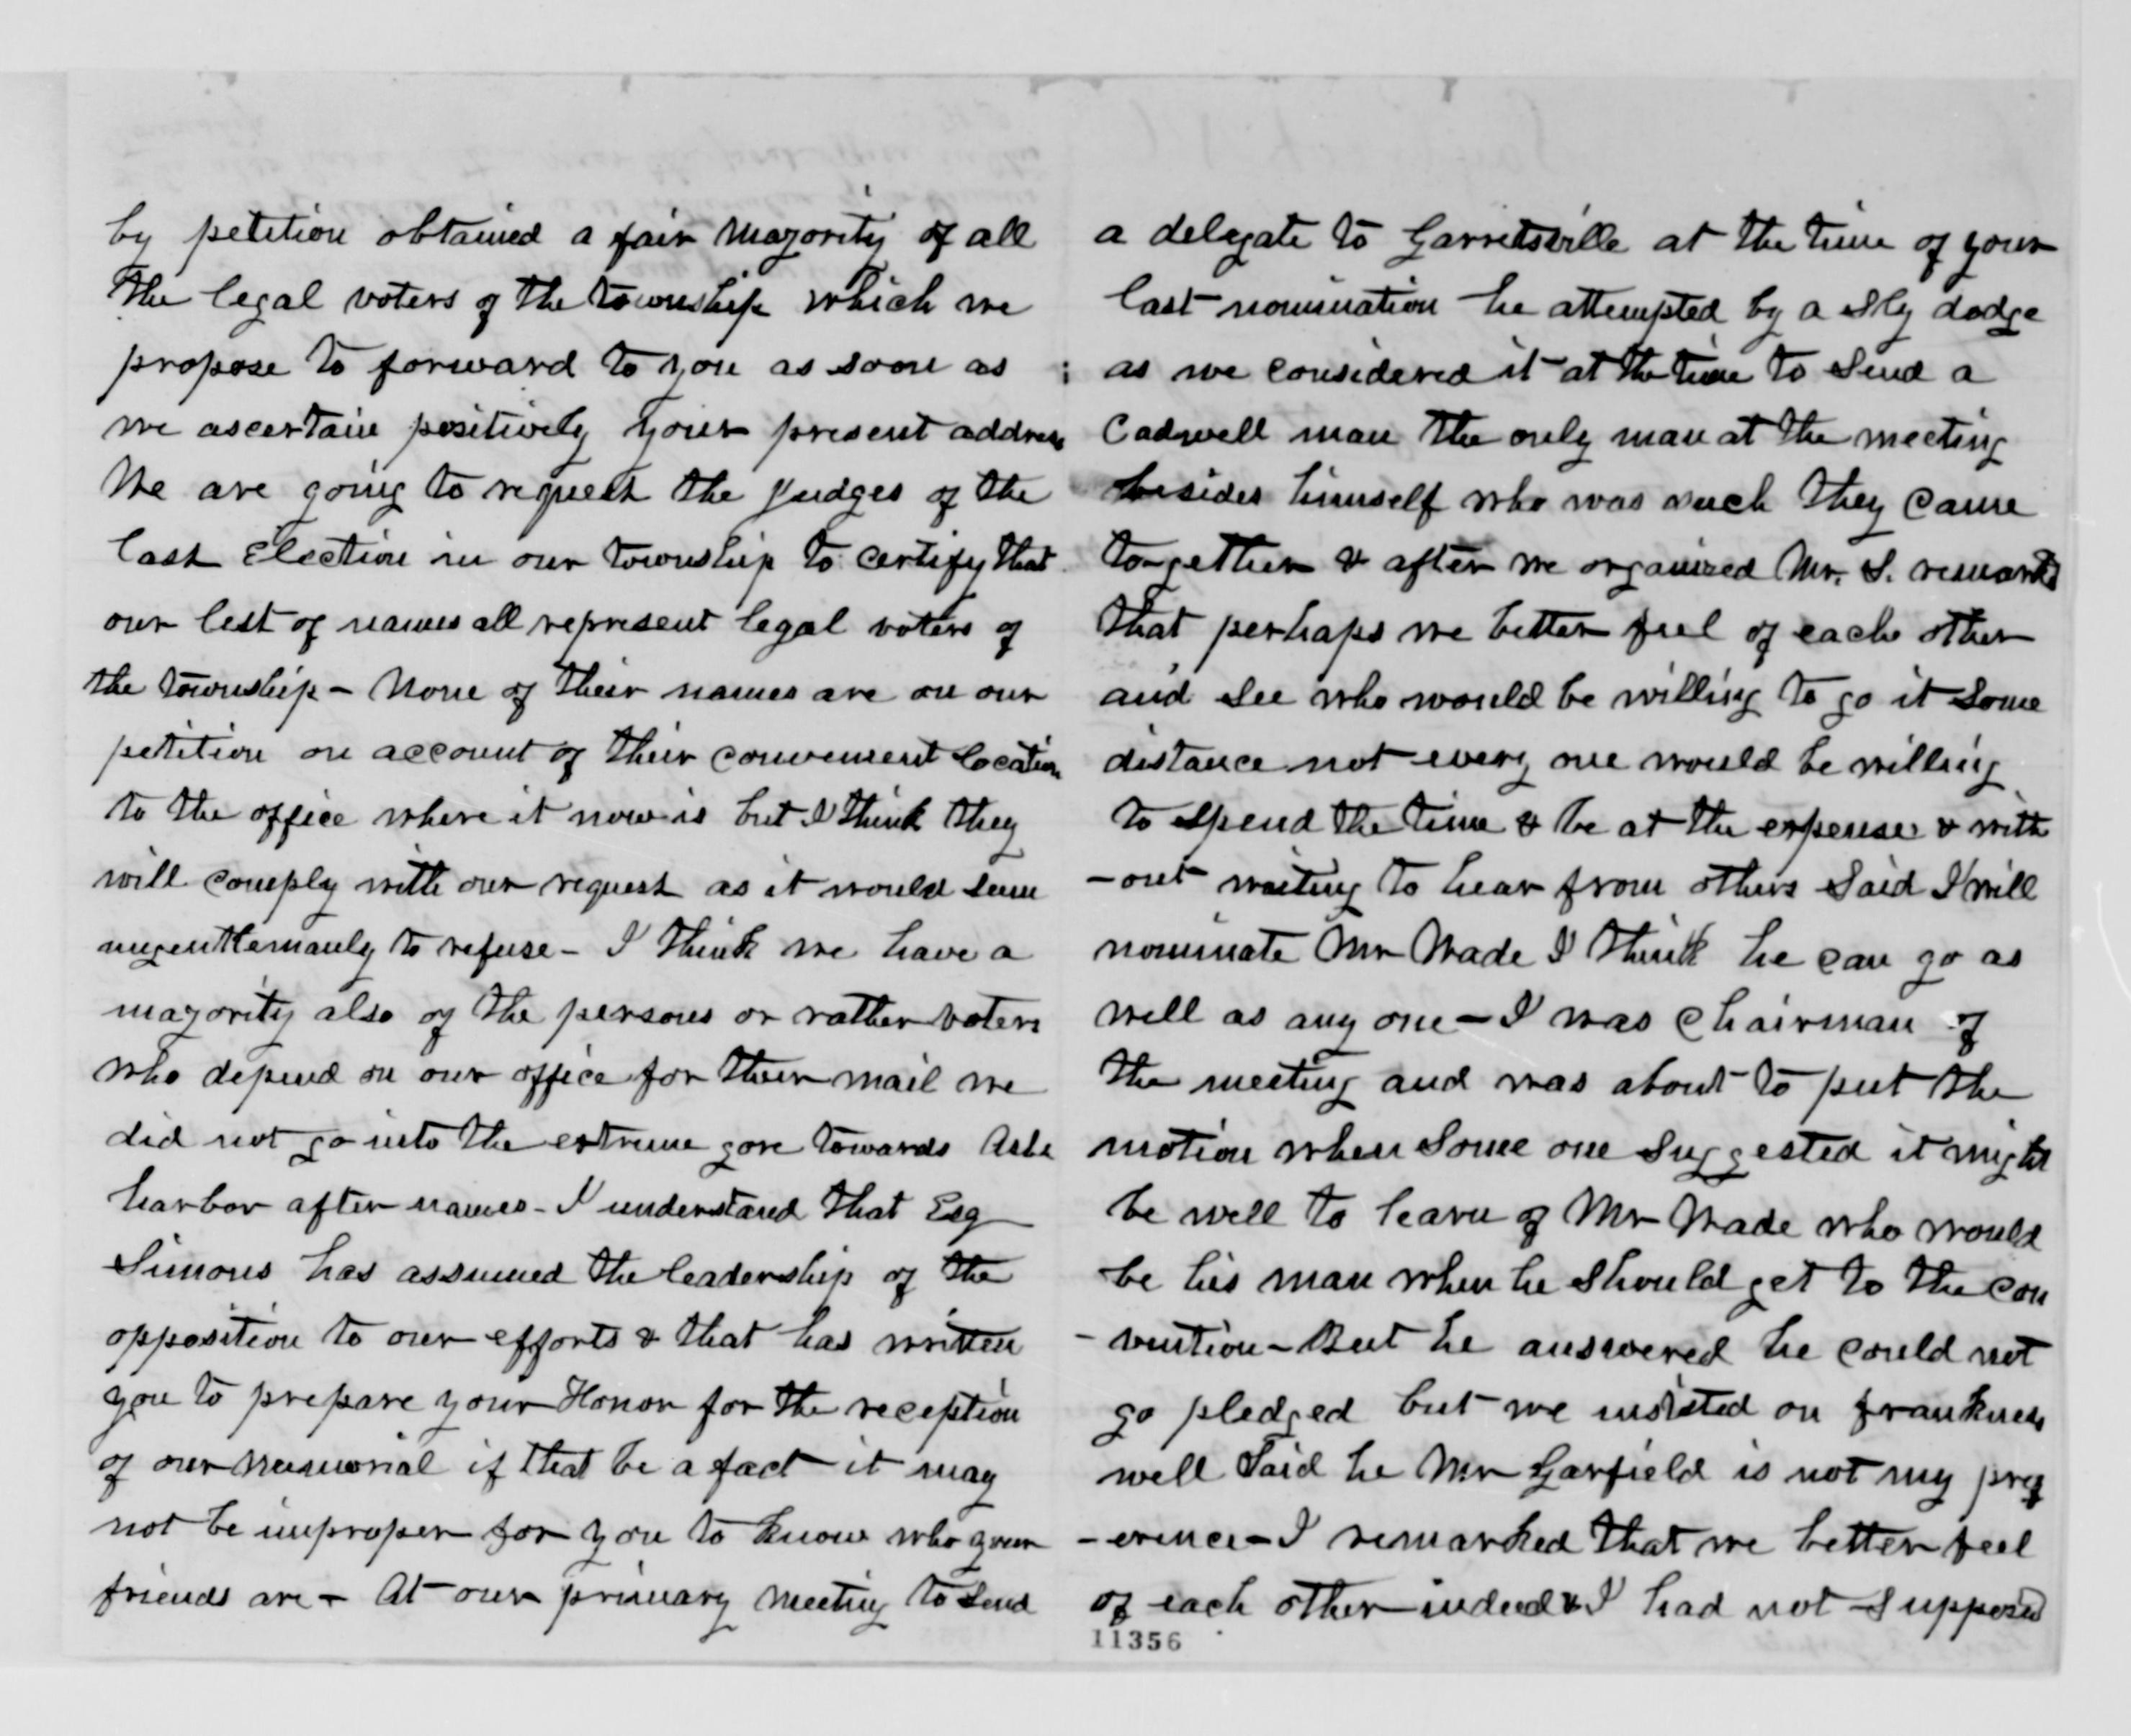 by petition obtained a fair majority of all
the legal voters of the township which we
propose to forward to you as soon as
we ascertain positively your present address
We are going to request the judges of the
last Election in our township to certify that
our list of names all represent legal voters of
the township - None of their names are on our
petition on account of their convenient location
to the office where it now is but I think they
will comply with our request as it would seem
ungentlemanly to refuse - I think we have a
majority also of the persons or rather voters
who depend on our office for their mail we
did not go into the extreme gore towards Ash
harbor after names - I understand that Esq
Simons has assumed the leadership of the
opposition to our efforts & that has written
you to prepare your Honor for the reception
of our memorial if that be a fact it may
not be improper for you to know who your
friends are - At our primary meeting to send
a delegate to Garretsville at the time of your
last nomination he attempted by a sly dodge
as we considered it at the time to send a
Cadwell man the only man at the meeting
besides himself who was such they came
together & after we organized Mr. S. remarkd
that perhaps we better feel of each other
and see who would be willing to go it some
distance not every one would be willing
to spend the time & be at the expense & with
-out waiting to hear from others said I will
nominate Mr Wade I think he can go as
well as any one - I was chairman of
the meeting and was about to put the
motion when some one suggested it might
be well to learn of Mr Wade who would
be his man when he should get to the con
-vention - But he answered he could not
go pledged but we insisted on frankness
well said he Mr Garfield is not my pref
-erence - I remarked that we better feel
of each other indeed & I had not supposed
11356